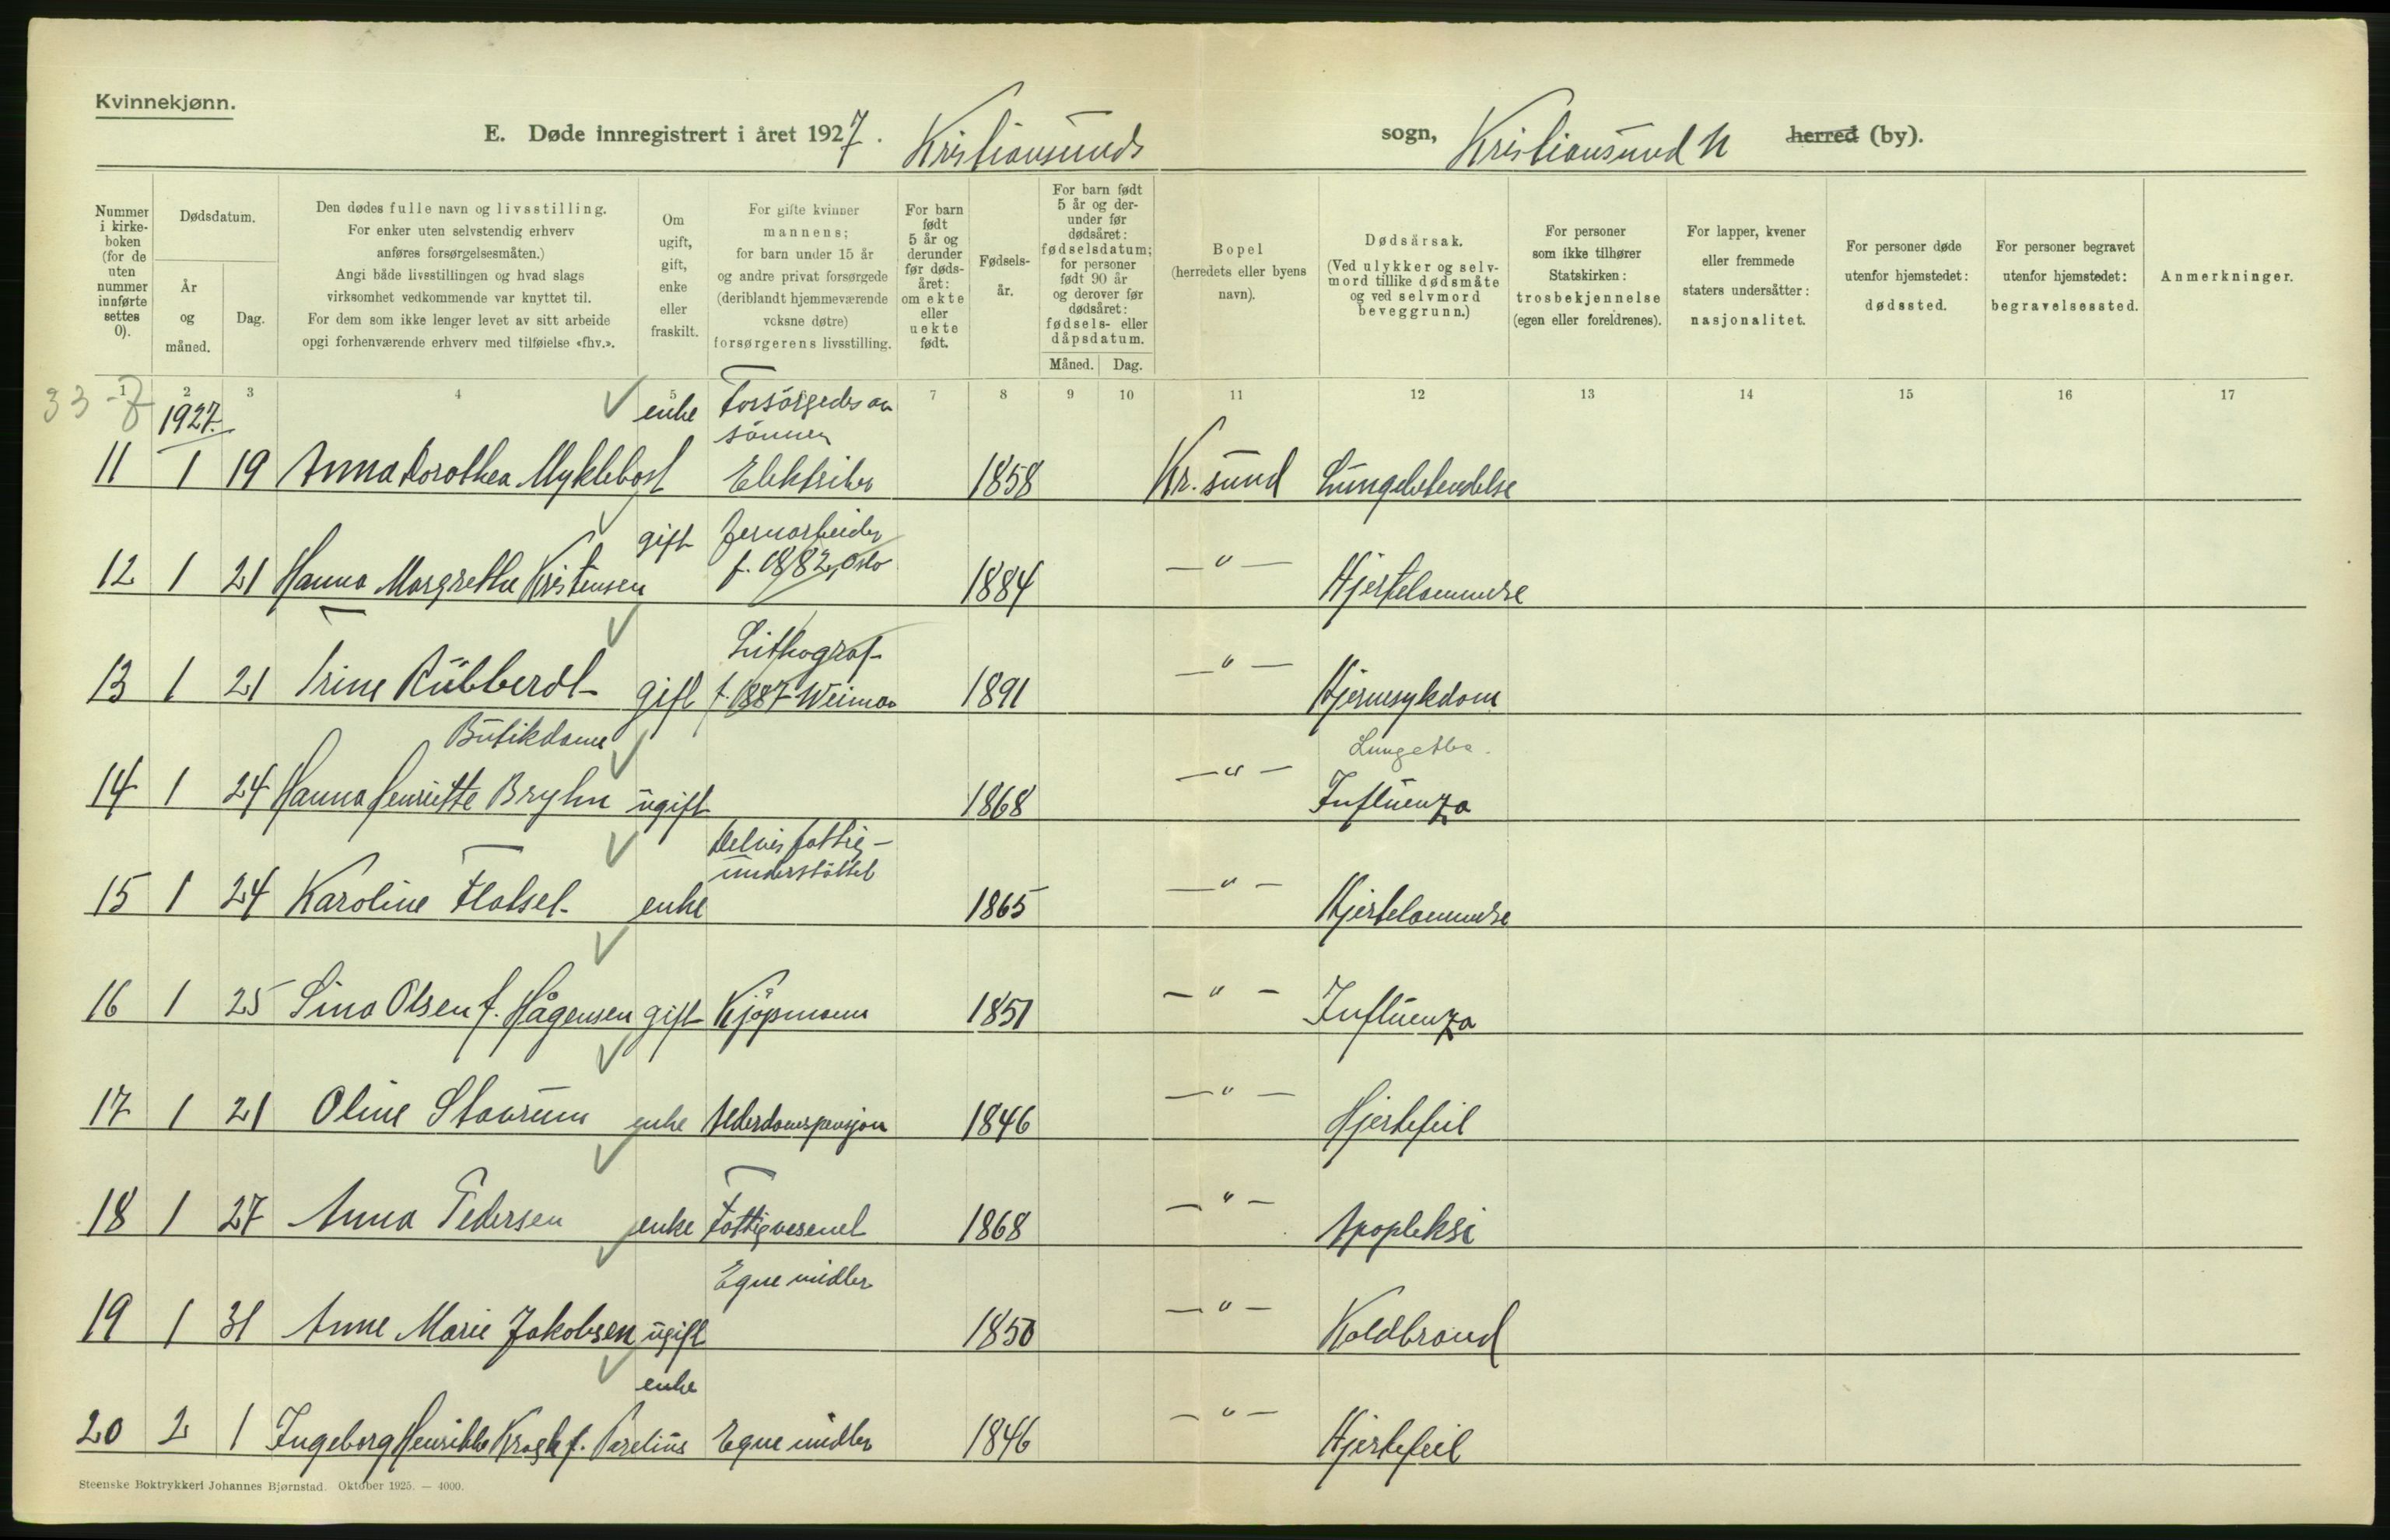 Kvinnekjønn.
E. Døde innregistrert i året 1927. Kristiansunds sogn, Kristiansund N herred (by).
Nummer i kirkeboken (for de uten nummer innførte settes 0).
Dødsdatum.
År og måned.
Dag.
Den dødes fulle navn og livsstilling.
For enker uten selvstendig erhverv
anføres forsørgelsesmåten.)
Angi både livsstillingen og hvad slags
virksomhet vedkommende var knyttet til.
For dem som ikke lenger levet av sitt arbeide
opgi forhenværende erhverv med tilføielse «fhv.».
Om ugift, gift, enke eller fraskilt.
For gifte kvinner
mannens;
for barn under 15 år
og andre privat forsørgede
(deriblandt hjemmeværende
voksne døtre)
forsørgerens livsstilling.
For barn født 5 år og derunder før dødsåret: om ekte eller uekte født.
Fødselsår.
For barn født 5 år og derunder før dødsåret: fødselsdatum; for personer født 90 år og derover før dødsåret: fødsels- eller dåpsdatum.
Måned. Dag.
Bopel
(herredets eller byens navn).
Dødsårsak.
(Ved ulykker og selvmord tillike dødsmåte og ved selvmord beveggrunn.)
For personer som ikke tilhører Statskirken: trosbekjennelse (egen eller foreldrenes).
For lapper, kvener eller fremmede staters undersåtter: nasjonalitet.
For personer døde utenfor hjemstedet: dødssted.
For personer begravet utenfor hjemstedet: begravelsessted.
Anmerkninger.
1 2 3 4 5 7 8 9 10 11 12 13 14 15 16 17
33-7
1927.
enke Forsörgedes av
sönnen
11 1 19 Anna Dorothea Myklebost Elektriker 1858 Kr.sund Lungebetendelse
gift Jernarbeider
12 1 21 Hanna Margrethe Kristensen f. 1882, Oslo 1884 — " — Hjertelammelse
Lithograf
13 1 21 Trine Rübberdt gift f. 1887 Weimar 1891 — " — Hjernesykdom
Butikdame Lungetbc.
14 1 24 Hanna Henriette Bryhn ugift 1868 — " — Influenza
Delvis fattig-
understöttet
15 1 24 Karoline Flatset enke 1865 — " — Hjertelammelse
16 1 25 Sina Olsen f. Hågensen gift Kjöpmann 1851 — " — Influenza
17 1 21 Oline Stavrum enke Alderdomspensjon 1846 — " — Hjertefeil
18 1 27 Anna Pedersen enke Fattigvesenet 1868 — " — Apopleksi
Egne midler
19 1 31 Anne Marie Jakobsen ugift 1850 — " — Koldbrand
enke
20 2 1 Ingeborg Henrikke Krogh f. Parelius Egne midler 1846 — " — Hjertefeil
Steenske Boktrykkeri Johannes Bjørnstad. Oktober 1925. — 4000.